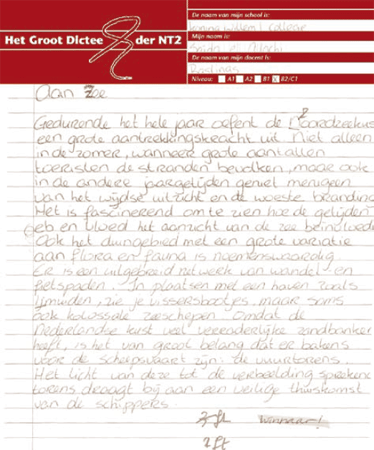 De naam van mijn school is:
Koning Willem I College
Het Groot Dictee der NT2
Mijn naam is:
De naam van mijn docent is:
Niveau: A1 A2 B1 B2/C1
Aan Zee
Gedurende het hele jaar oefent de Noordzeekus
een grote aantrekkingskracht uit. Niet alleen
in de zomer, wanneer grote aantallen
toeristen de stranden bevolken, maar ook
in de andere jaargetijden geniet menigeen
van het wijdse uitzicht en de woeste branding
Het is fascinerend om te zien hoe de getijden
eb en vloed het aanzicht van de zee beïnvloede
Ook het duingebied met een grote variatie
aan flora en fauna is noemenswaardig
Er is een uitgebreid netwerk van wandel- en
fietspaden. In plaatsen met een haven zoals
IJmuiden, zie je vissersbootjes, maar soms
ook kolossale zeeschepen. Omdat de
Nederlandse kust veel veranderlijke zandbanken
heeft, is het van groot belang dat er bakens
voor de scheepvaart zijn: de vuurtorens.
Het licht van deze tot de verbeelding sprekende
torens draagt bij aan een veilige thuiskomst
van de schippers.
3 ft Winnaar!
2 ft